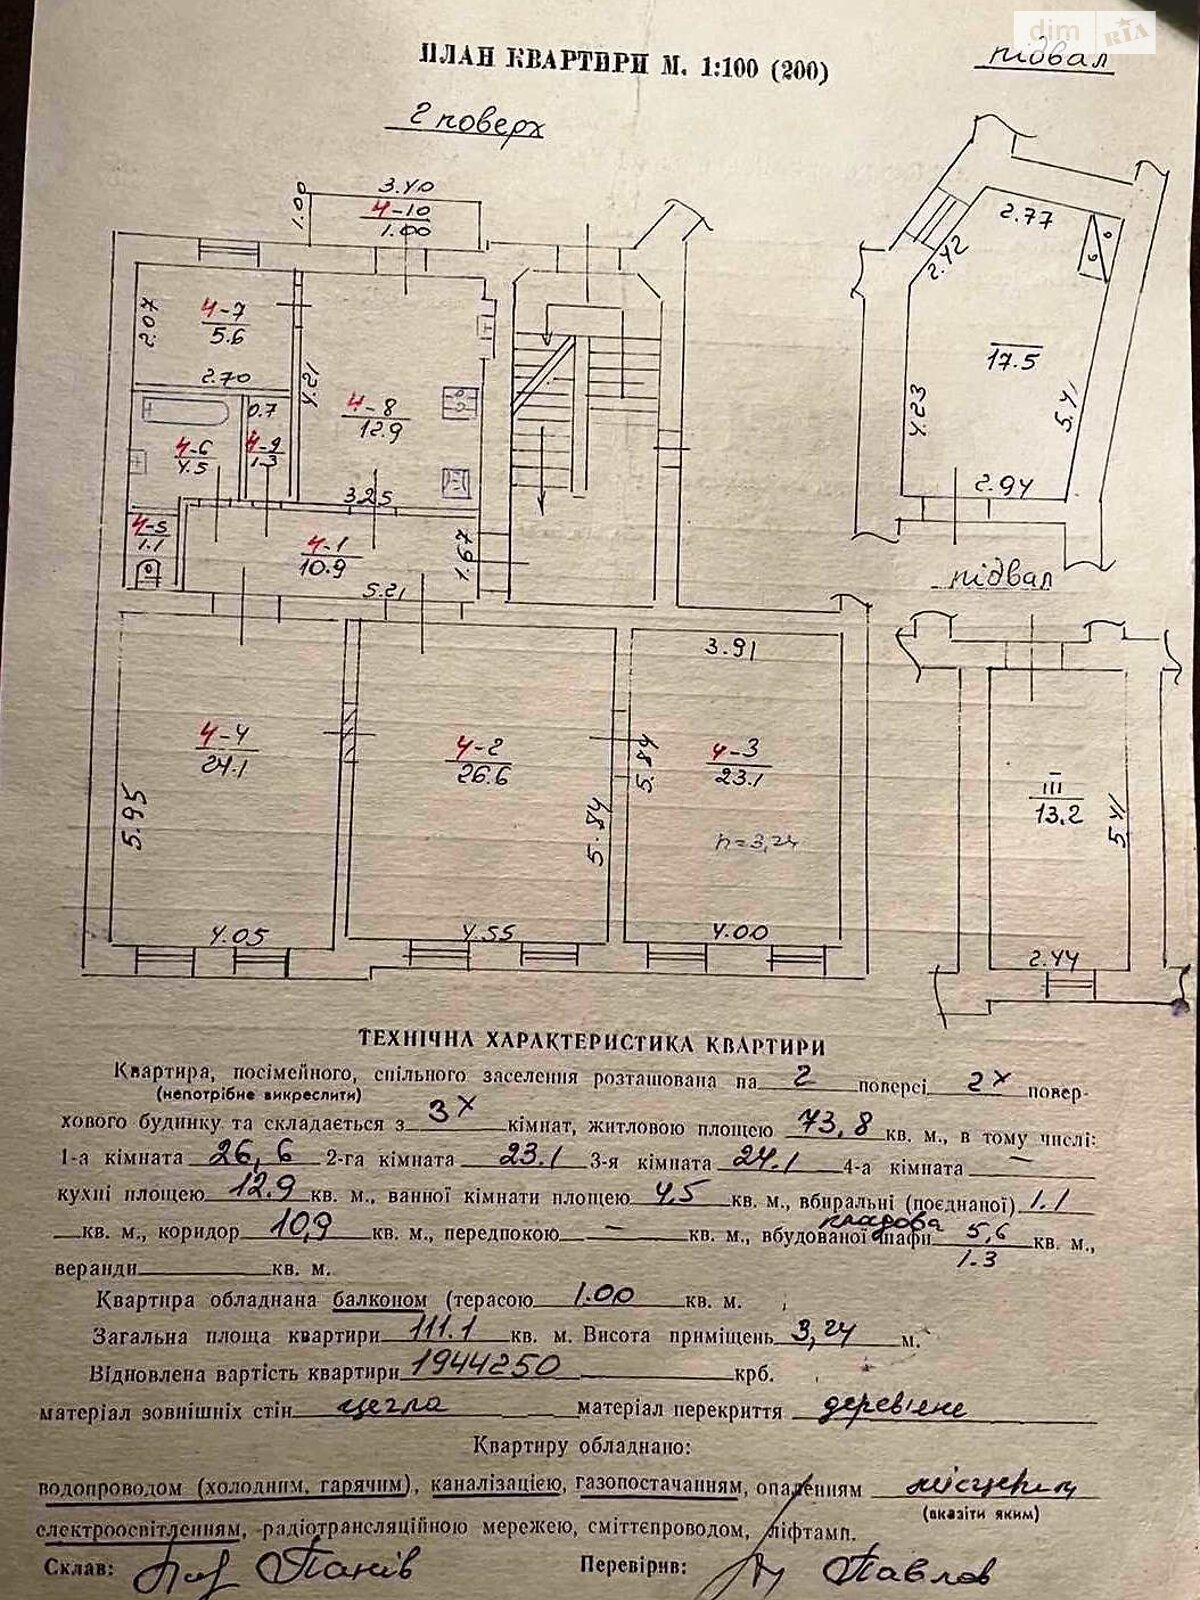 dim RIA
ПЛАН КВАРТИРИ М. 1:100 (200)
підвал
2 поверх
3.40
1.00
4-10
1.00
2.77
2.42
4-7
5.6
2.07
2.70
4.21
17.5
4-8
12.9
0.7
4-6
4.5
4-9
1.3
4.23
5.41
3.25
2.94
4-5
1.1
4-1
10.9
1.67
5.21
підвал
3.91
4-4
24.1
4-2
26.6
5.84
4-3
23.1
III
13.2
5.95
5.84
h=3,24
5.41
4.05
4.55
4.00
2.44
ТЕХНІЧНА ХАРАКТЕРИСТИКА КВАРТИРИ
Квартира, посімейного, спільного заселення розташована на 2 поверсі 2х повер-
(непотрібне викреслити)
хового будинку та складається з 3х кімнат, житловою площею 73,8 кв. м., в тому числі:
1-а кімната 26,6 2-га кімната 23.1 3-я кімната 24.1 4-а кімната —
кухні площею 12.9 кв. м., ванної кімнати площею 4,5 кв. м., вбиральні (поєднаної) 1.1
кв. м., коридор 10,9 кв. м., передпокою — кв. м., вбудованої шафи кладова 5,6 кв. м.,
1.3
веранди кв. м.
Квартира обладнана балконом (терасою 1.00 кв. м.
Загальна площа квартири 111.1 кв. м. Висота приміщень 3,24 м.
Відновлена вартість квартири 1944250 крб.
матеріал зовнішніх стін цегла матеріал перекриття дерев'яне
Квартиру обладнано:
водопроводом (холодним, гарячим), каналізацією, газопостачанням, опаленням місцевим
(вказіти яким)
електроосвітленням, -радіотрансляційною мережею, сміттєпроводом, ліфтамп.
Склав: Панів Перевірив: Павлов